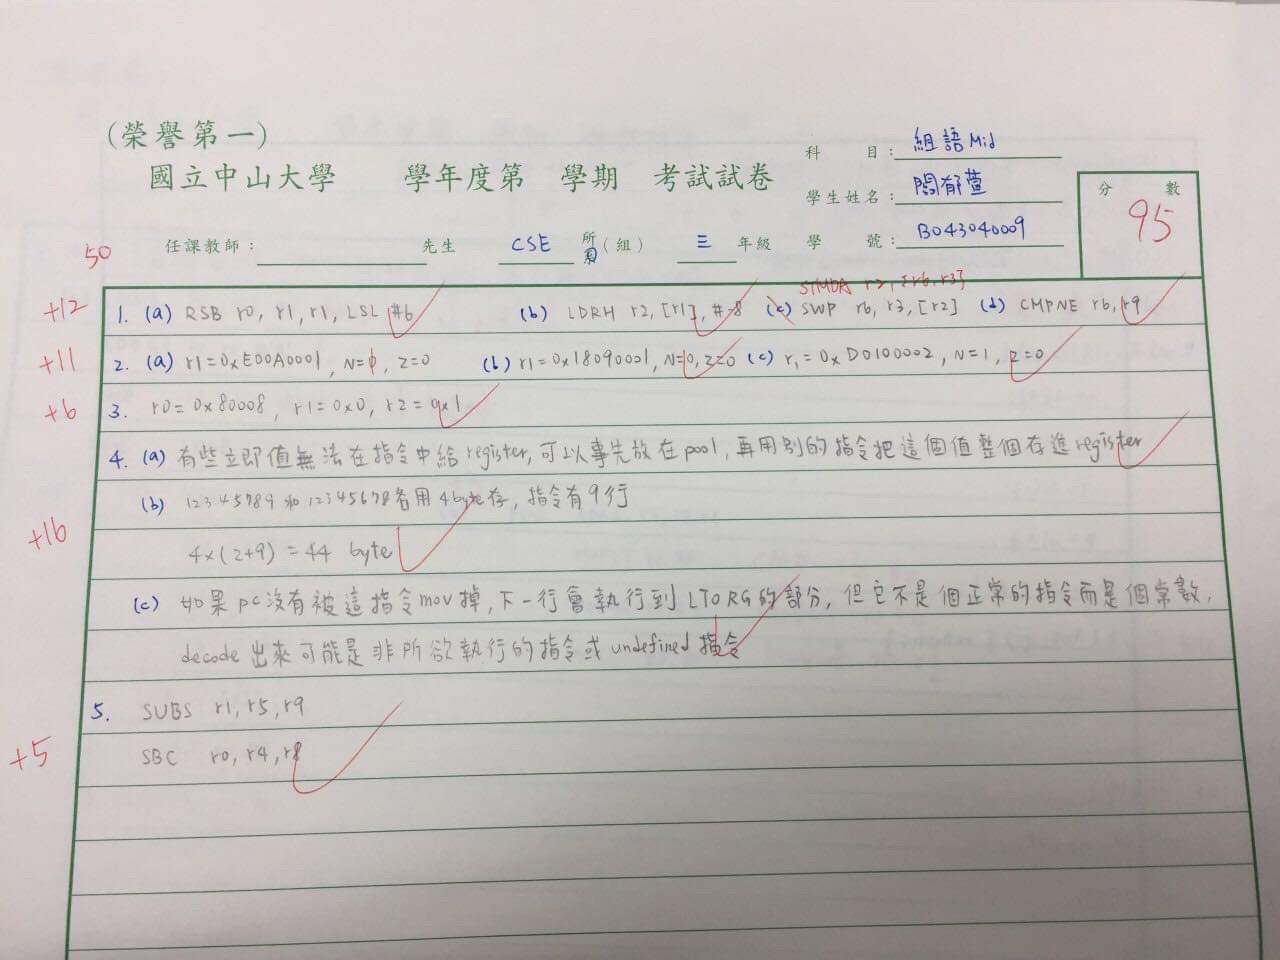 (榮譽第一)
國立中山大學 學年度第 學期 考試試卷
科 目: 組語 Mid
學生姓名: 閻郁萱
分 數
95
任課教師: 先生 CSE 所系(組) 三 年級 學 號: B043040009
50
STMDA r2, {r6, r3}
+12 1. (a) RSB r0, r1, r1, LSL #6 (b) LDRH r2, [r1], #-8 (c) SWP r6, r3, [r2] (d) CMPNE r6, r9
+11 2. (a) r1=0xE00A0001, N=0, Z=0 (b) r1=0x18090001, N=0, Z=0 (c) r1=0xD0100002, N=1, Z=0
+6 3. r0=0x80008, r1=0x0, r2=0x1
4. (a) 有些立即值無法在指令中給 register, 可以事先放在 pool, 再用別的指令把這個值整個存進 register
(b) 123456789 和 12345678 各用 4 byte 存, 指令有 9 行
+16 4×(2+9) = 44 byte
(c) 如果 pc 沒有被這指令 mov 掉, 下一行會執行到 LTORG 的部分, 但它不是個正常的指令而是個常數,
decode 出來可能是非所欲執行的指令或 undefined 指令
5. SUBS r1, r5, r9
+5 SBC r0, r4, r8